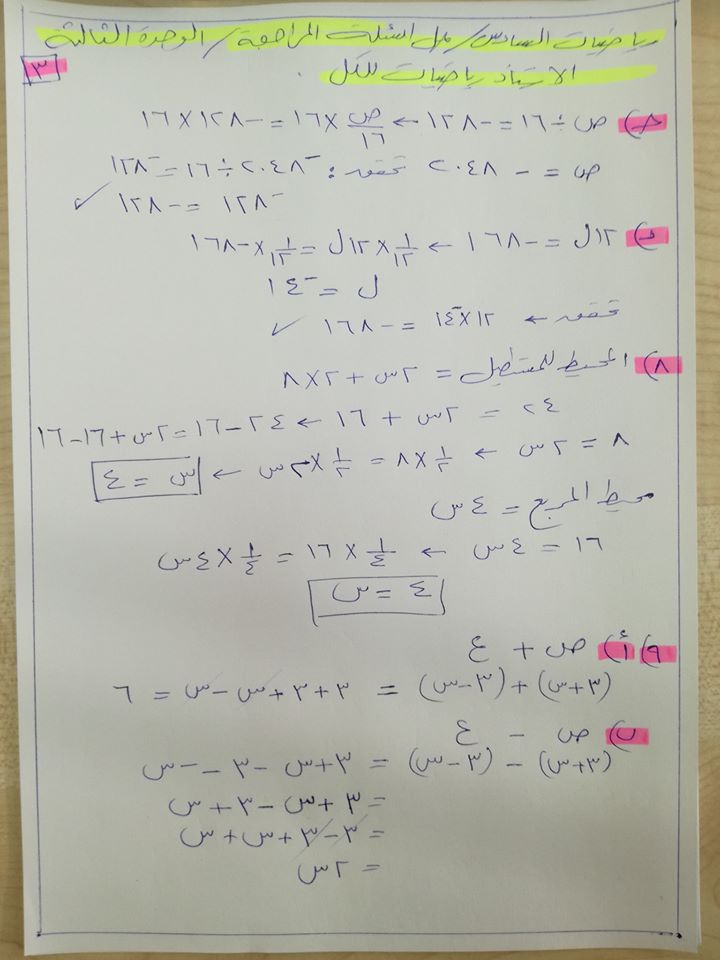 رياضيات السادس / حل اسئلة المراجعة / الوحدة الثالثة
الاستاذ رياضيات للكل.
٣
جـ) ص ÷ ١٦ = -١٢٨ ← ص/١٦ × ١٦ = -١٢٨ × ١٦
ص = -٢٠٤٨ تحقق: -٢٠٤٨ ÷ ١٦ = -١٢٨
-١٢٨ = -١٢٨ ✓
د) ١٢ل = -١٦٨ ← ١/١٢ × ١٢ل = ١/١٢ × -١٦٨
ل = -١٤
تحقق ← ١٢ × -١٤ = -١٦٨ ✓
٨) المحيط للمستطيل = ٢س + ٢×٨
٢٤ = ٢س + ١٦ ← ٢٤ - ١٦ = ٢س + ١٦ - ١٦
٨ = ٢س ← ١/٢ × ٨ = ١/٢ × ٢س ← س = ٤
محيط المربع = ٤س
١٦ = ٤س ← ١/٤ × ١٦ = ١/٤ × ٤س
٤ = س
٩) أ) ص + ع
(٣+س) + (٣-س) = ٣+٣+س-س = ٦
ب) ص - ع
(٣+س) - (٣-س) = ٣+س-٣--س
= ٣+س-٣+س
= ٣-٣+س+س
= ٢س